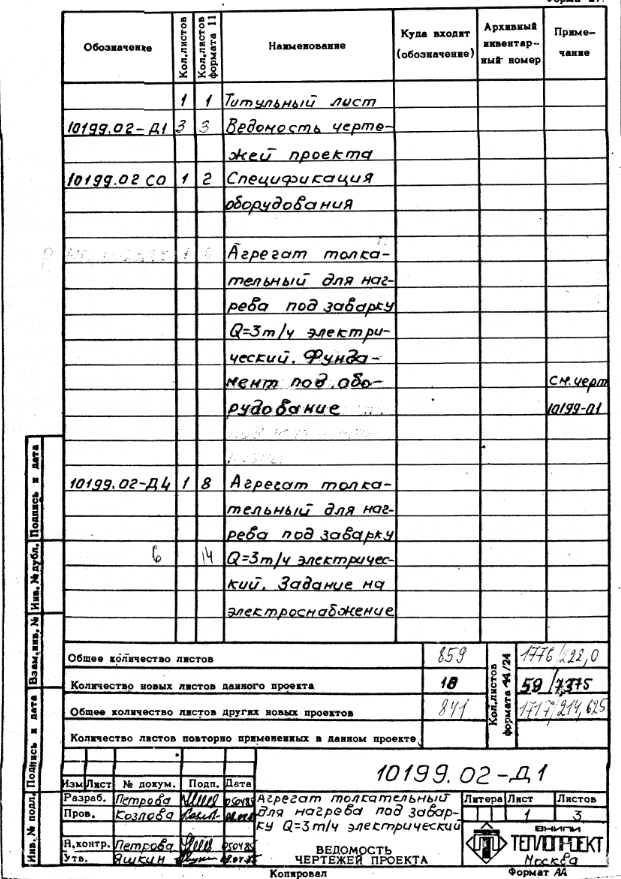 Обозначение Кол.листов Кол.листов формата 11 Наименование Куда входит (обозначение) Архивный инвентар- ный номер Приме- чание
1 1 Титульный лист
10199.02-Д1 3 3 Ведомость черте-
жей проекта
10199.02 СО 1 2 Спецификация
оборудования
Агрегат толка-
тельный для наг-
рева под заварку
Q=3т/ч электри-
ческий. Фунда-
мент под обо- см. черт
рудование 10199-01
10199.02-Д4 1 8 Агрегат толка-
тельный для наг-
рева под заварку
6 14 Q=3т/ч электричес-
кий. Задание на
электроснабжение
Общее количество листов 859 Кол.листов формата 44/24 1776/222,0
Количество новых листов данного проекта 18 59/7,375
Общее количество листов других новых проектов 841 1717/214,625
Количество листов повторно примененных в данном проекте
10199.02-Д1
Изм Лист № докум. Подп. Дата
Разраб. Петрова 050485 Агрегат толкательный Литера Лист Листов
Пров. Козлова для нагрева под завар- 1 3
ку Q=3т/ч электрический
Н.контр. Петрова 050485 ВЕДОМОСТЬ ВНИПИ ТЕПЛОПРОЕКТ
Утв. Яшкин ЧЕРТЕЖЕЙ ПРОЕКТА Москва
Копировал Формат А4
Инв.№ подл. Подпись и дата Взам.инв.№ Инв.№ дубл. Подпись и дата